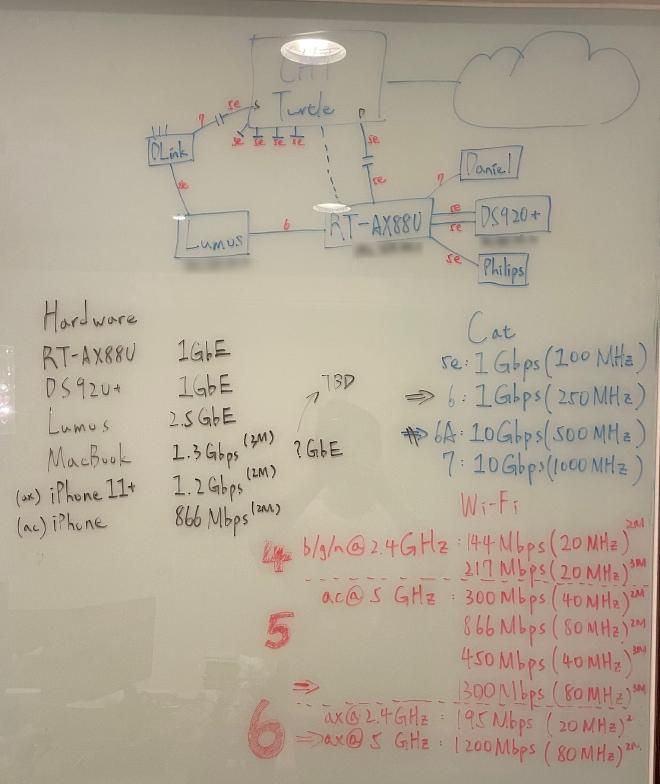 CHT
Turtle
5
P
7
5e
5e
5e
5e
5e
5e
5e
DLink
5e
Lumos
6
RT-AX88U
7
Daniel
5e
5e
DS920+
5e
Philips
Hardware
RT-AX88U 1GbE
DS920+ 1GbE
Lumos 2.5GbE
MacBook 1.3Gbps (3M) ?GbE TBD
(ax) iPhone 11+ 1.2Gbps (2M)
(ac) iPhone 866 Mbps (2M)
Cat
5e: 1Gbps (100 MHz)
⇒ 6: 1Gbps (250MHz)
⇒ 6A: 10Gbps (500 MHz)
7: 10Gbps (1000MHz)
Wi-Fi
4 b/g/n@2.4GHz: 144Mbps (20 MHz) 2M
217Mbps (20 MHz) 3M
ac@5 GHz: 300Mbps (40MHz) 2M
5 866Mbps (80MHz) 2M
450Mbps (40MHz) 3M
⇒ 1300Mbps (80MHz) 3M
6 ax@2.4GHz: 195Mbps (20MHz) 2
⇒ ax@5 GHz: 1200Mbps (80MHz) 2M